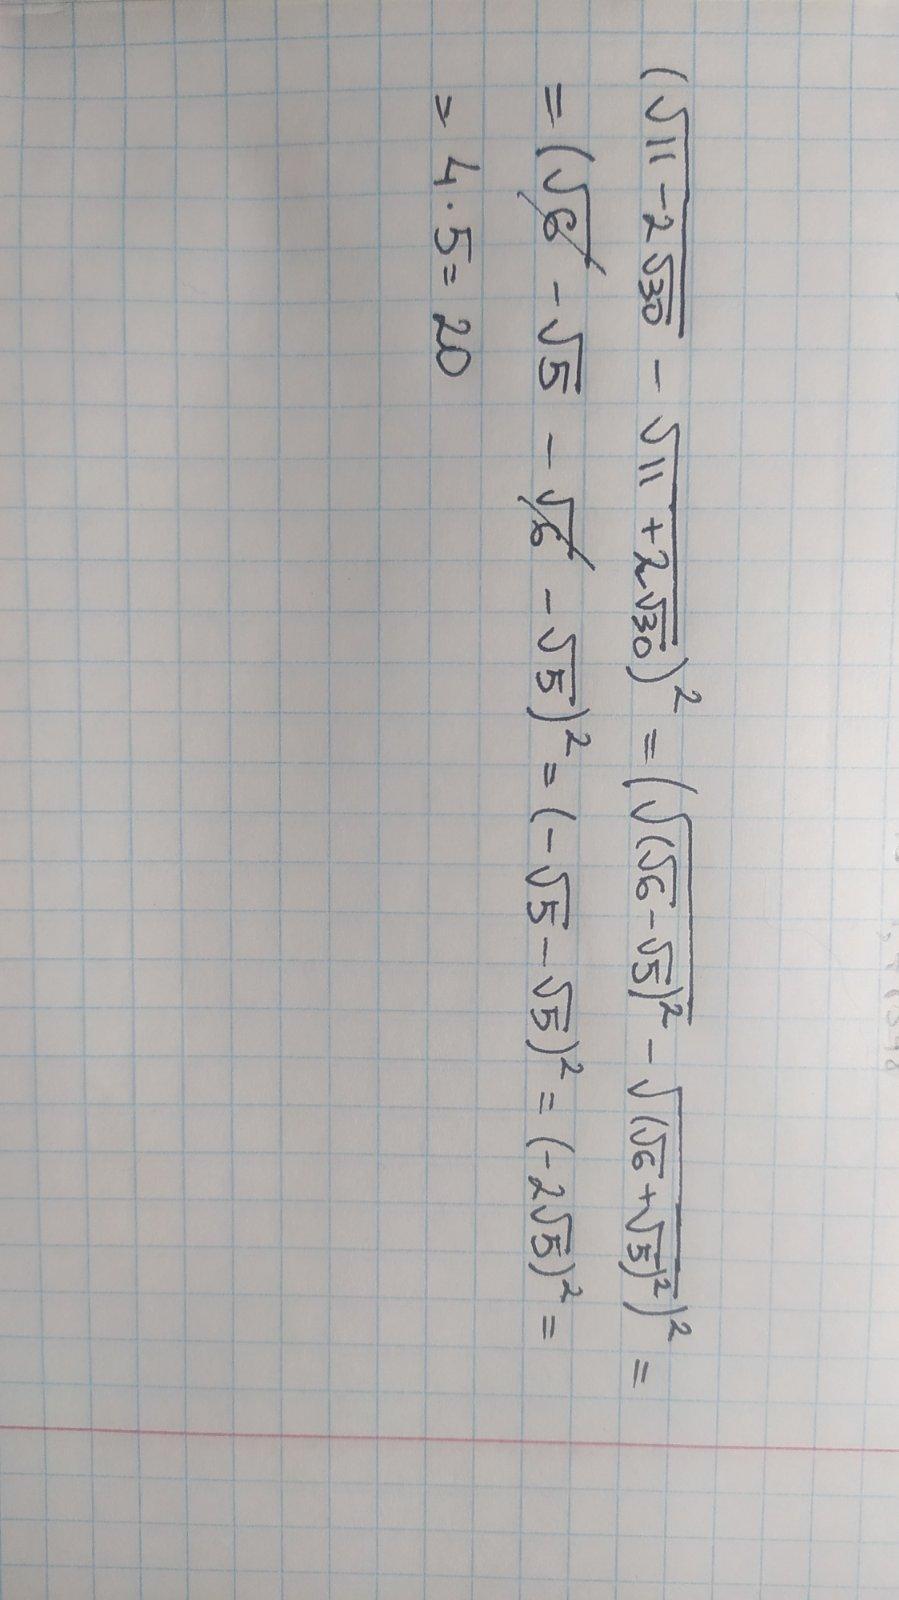 (√(11-2√30) - √(11+2√30))² = (√((√6-√5)²) - √((√6+√5)²))² =
= (√6 - √5 - √6 - √5)² = (-√5-√5)² = (-2√5)² =
= 4·5 = 20